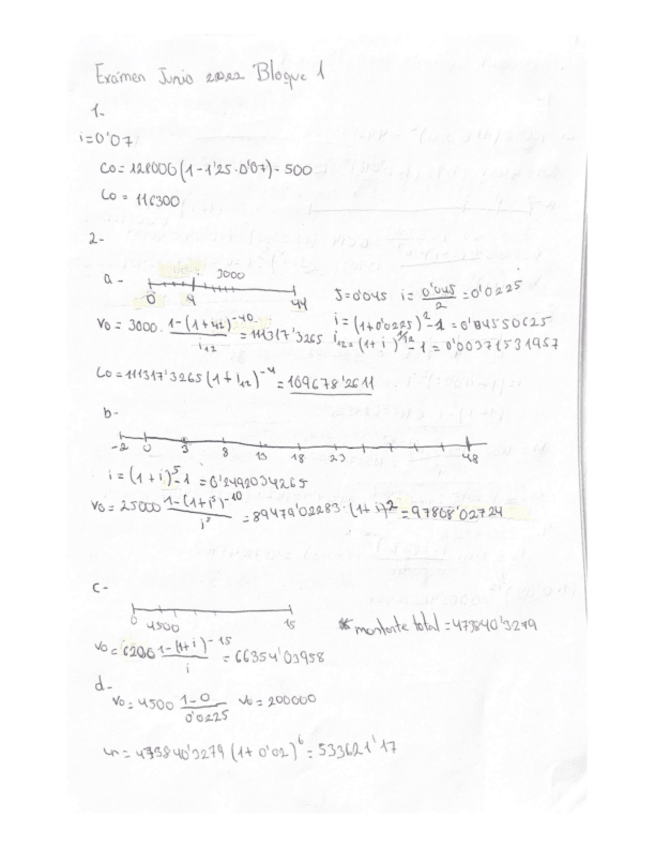 Exámen Junio 2022 Bloque 1
1-
i=0'07
Co= 128000(1-1'25·0'07)-500
Co = 116300
2-
a-
3000
0 4 44
J=0'045 i= 0'045/2 =0'0225
i=(1+0'0225)^2-1=0'04550625
i12=(1+i)^1/12-1=0'00371531957
Vo= 3000· 1-(1+i12)^-40/i12 =111317'3265
Co=111317'3265(1+i12)^-4=109678'2611
b-
-2 0 3 8 13 18 23 48
i=(1+i)^5-1=0'2492034265
Vo=25000 1-(1+i^5)^-10/i^5 =89479'02283·(1+i)^2=97808'02724
c-
0 4500 15
* montante total=473840'3279
Vo=6200 1-(1+i)^-15/i =66354'03958
d-
Vo=4500 1-0/0'0225 Vo=200000
473840'3279(1+0'02)^6=533621'17